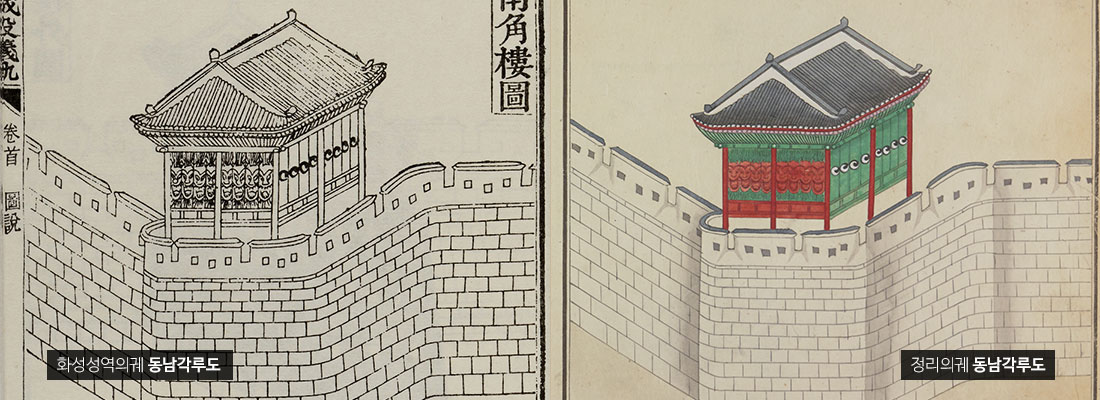 城役儀軌
卷首
圖說
南角樓圖
화성성역의궤 동남각루도
정리의궤 동남각루도